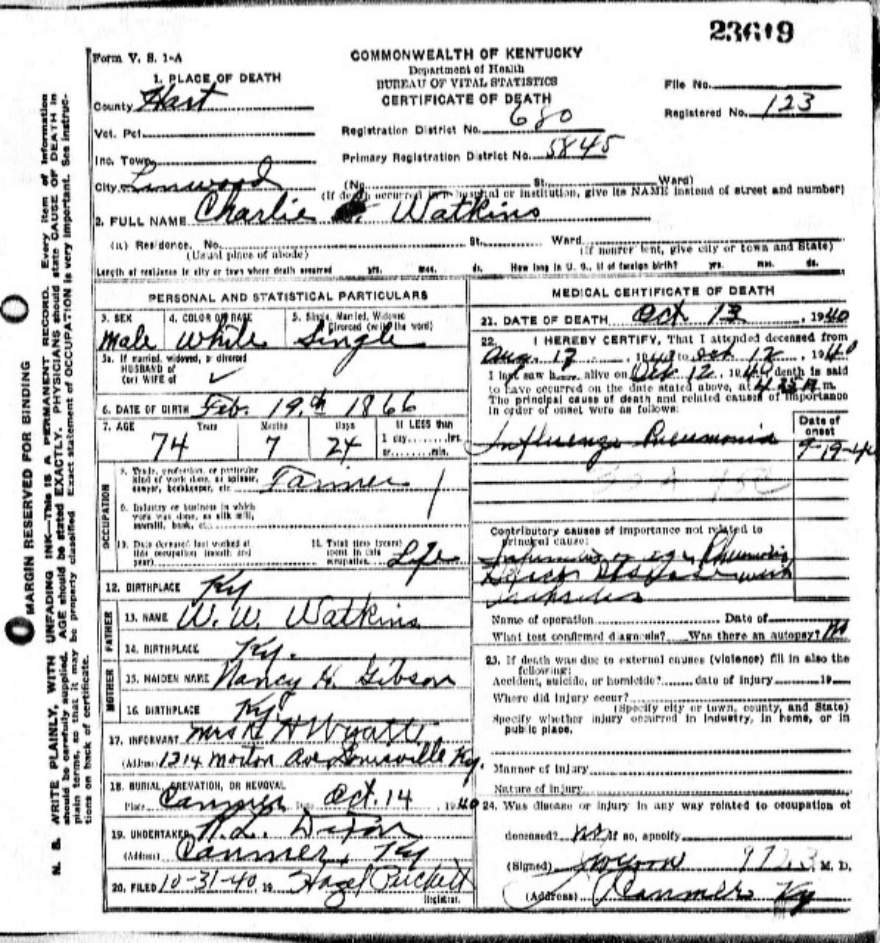 23619
Form V. S. 1-A
COMMONWEALTH OF KENTUCKY
Department of Health
BUREAU OF VITAL STATISTICS
CERTIFICATE OF DEATH
1. PLACE OF DEATH
County Hart
Vot. Pct.
Inc. Town
City Linwood
File No.
Registered No. 123
Registration District No. 680
Primary Registration District No. 5845
(No. St. Ward)
(If death occurred in a hospital or institution, give its NAME instead of street and number)
2. FULL NAME Charlie Watkins
(a) Residence. No. St. Ward
(Usual place of abode) (If nonresident, give city or town and State)
Length of residence in city or town where death occurred yrs. mos. ds. How long in U. S., if of foreign birth? yrs. mos. ds.
PERSONAL AND STATISTICAL PARTICULARS
3. SEX 4. COLOR OR RACE 5. Single, Married, Widowed
Divorced (write the word)
Male White Single
5a. If married, widowed, or divorced
HUSBAND of
(or) WIFE of
6. DATE OF BIRTH Feb. 19th 1866
7. AGE Years Months Days If LESS than
74 7 24 1 day hrs.
or min.
OCCUPATION
8. Trade, profession, or particular
kind of work done, as spinner,
sawyer, bookkeeper, etc. Farmer
9. Industry or business in which
work was done, as silk mill,
sawmill, bank, etc.
10. Date deceased last worked at
this occupation (month and
year)
11. Total time (years)
spent in this
occupation Life
12. BIRTHPLACE Ky
FATHER
13. NAME W. W. Watkins
14. BIRTHPLACE Ky.
MOTHER
15. MAIDEN NAME Nancy H. Gibson
16. BIRTHPLACE Ky
17. INFORMANT Mrs H Wyatt
(Address) 1314 Morton Ave Louisville Ky.
18. BURIAL, CREMATION, OR REMOVAL
Place Canmer Date Oct. 14, 1940
19. UNDERTAKER R. L. Dixon
(Address) Canmer, Ky
20. FILED 10-31-40, 19 Hazel Puckett
Registrar.
MEDICAL CERTIFICATE OF DEATH
21. DATE OF DEATH Oct 13, 1940
22. I HEREBY CERTIFY, That I attended deceased from
Aug. 17, 1940 to Oct 12, 1940
I last saw h alive on Oct 12, 1940 death is said
to have occurred on the date stated above, at m.
The principal cause of death and related causes of importance
in order of onset were as follows:
Date of
onset
Influenza Pneumonia 9-19-40
Contributory causes of importance not related to
principal cause:
Name of operation Date of
What test confirmed diagnosis? Was there an autopsy? No
23. If death was due to external causes (violence) fill in also the
following:
Accident, suicide, or homicide? date of injury 19
Where did injury occur?
(Specify city or town, county, and State)
Specify whether injury occurred in industry, in home, or in
public place.
Manner of injury
Nature of injury
24. Was disease or injury in any way related to occupation of
deceased? No If so, specify
(Signed) M. D.
(Address) Canmer Ky
MARGIN RESERVED FOR BINDING
N. B. WRITE PLAINLY, WITH UNFADING INK—THIS IS A PERMANENT RECORD. Every item of information
should be carefully supplied. AGE should be stated EXACTLY. PHYSICIANS should state CAUSE OF DEATH in
plain terms, so that it may be properly classified. Exact statement of OCCUPATION is very important. See instruc-
tions on back of certificate.